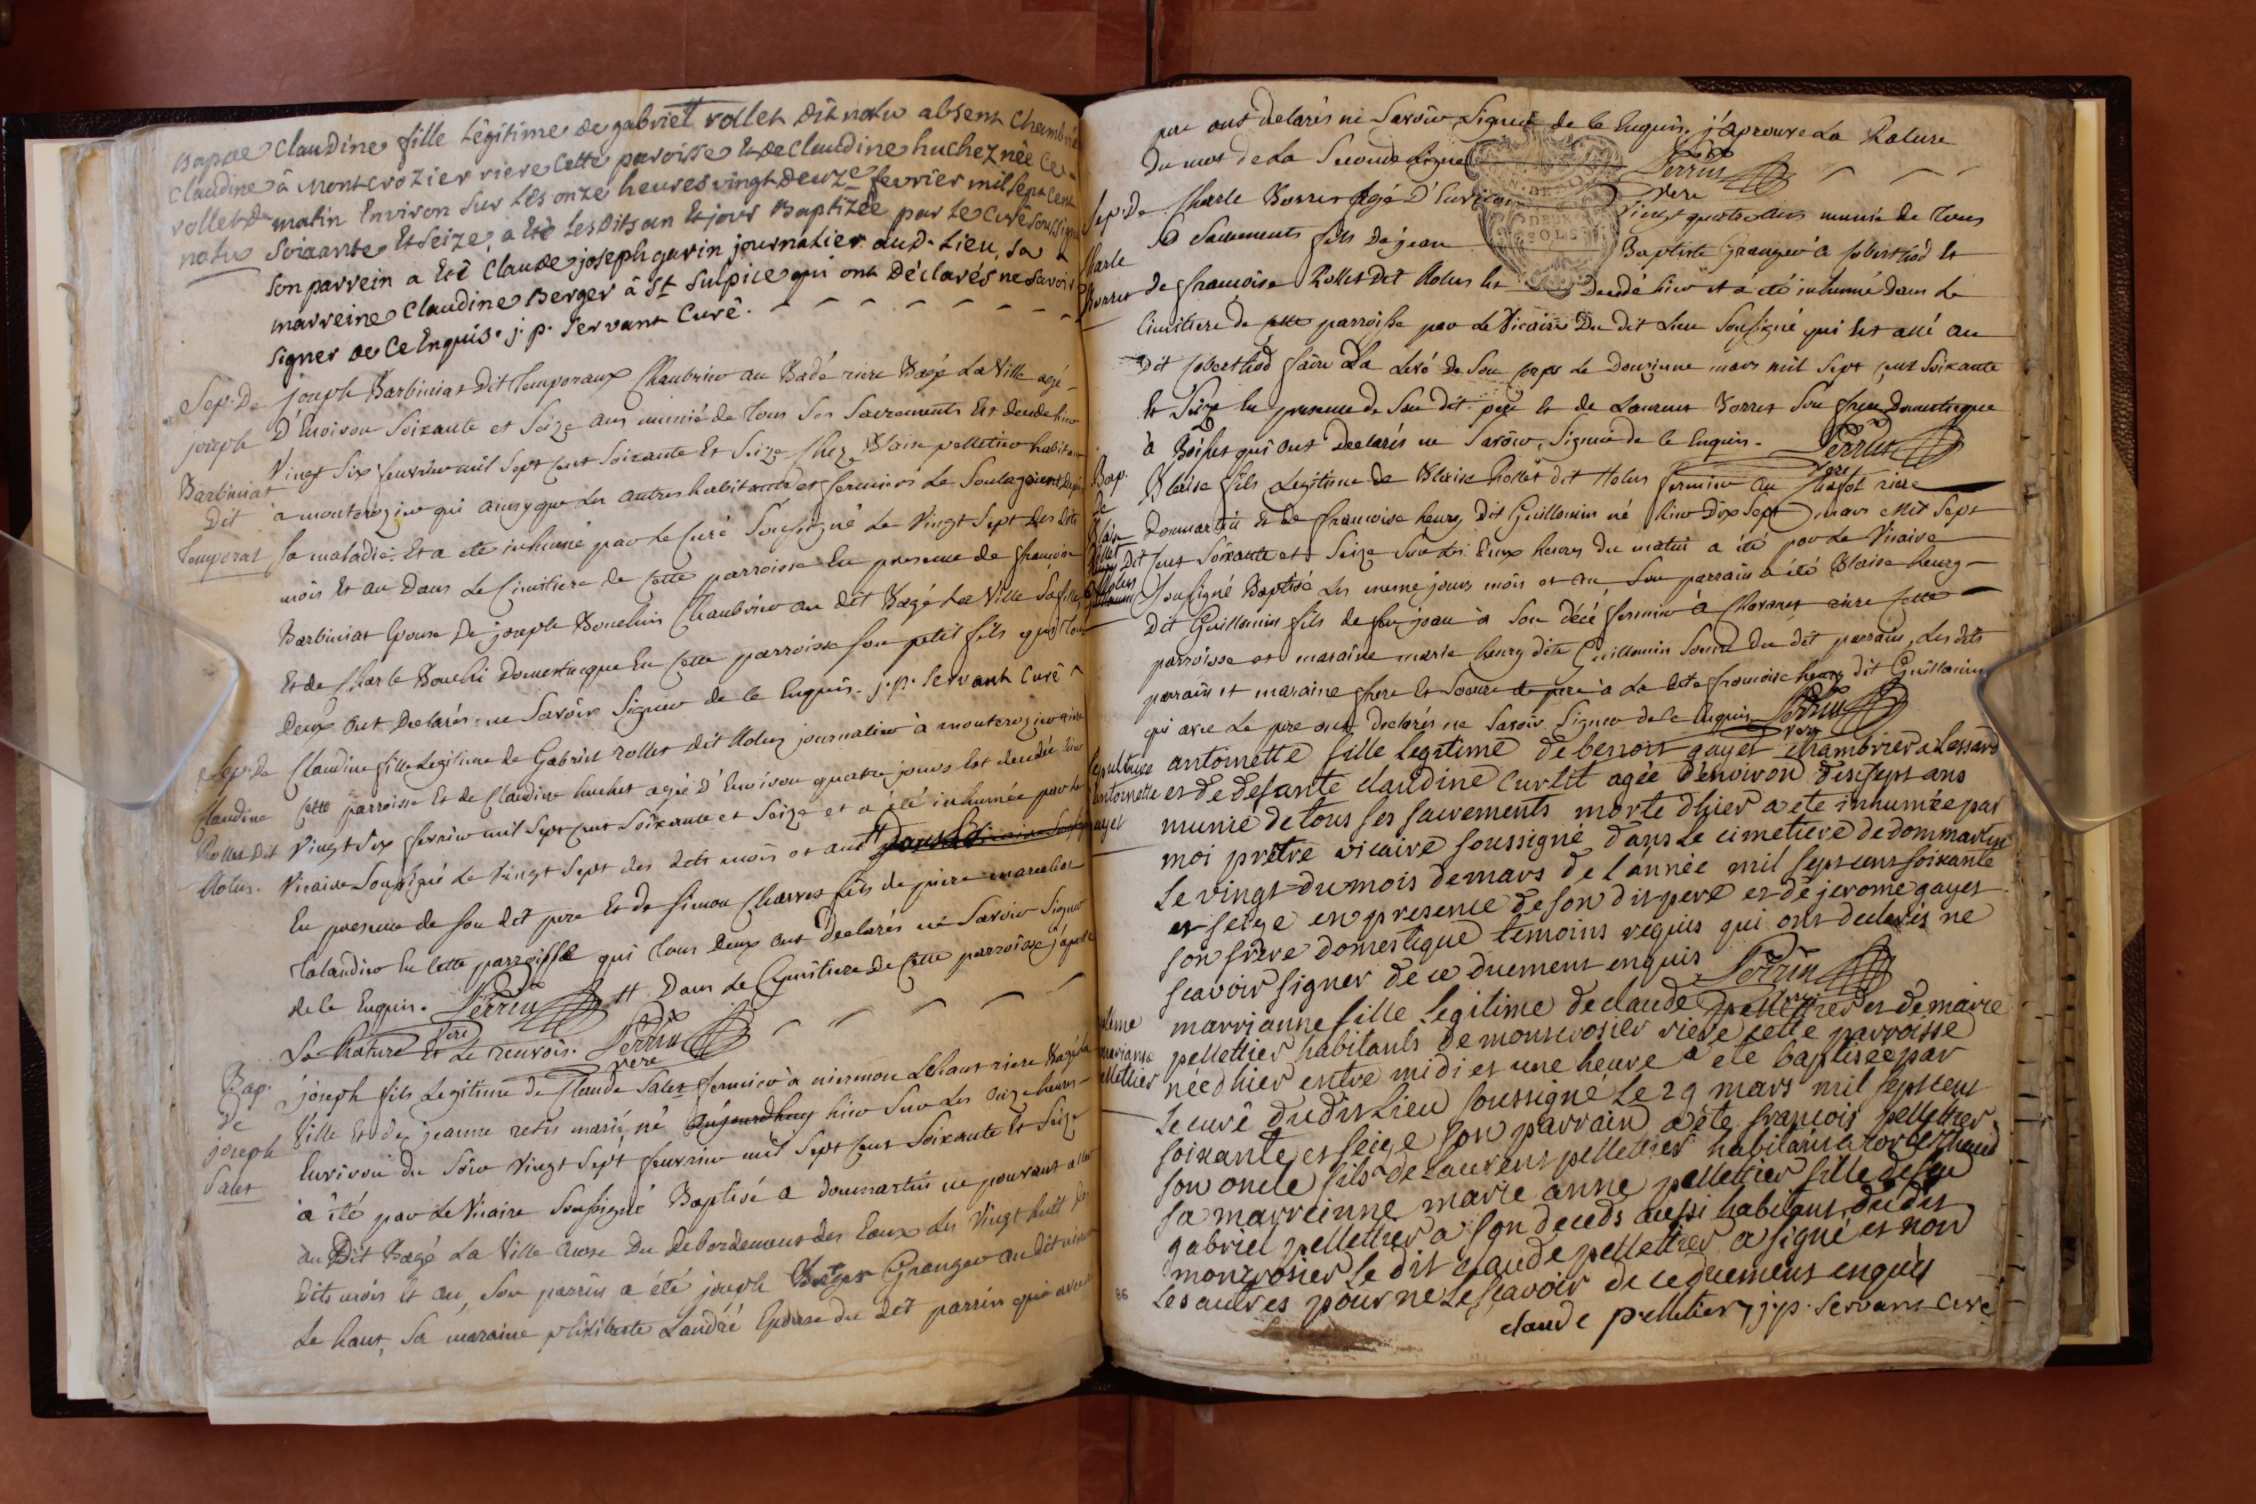 Bap de Claudine fille légitime de gabriel rollet dit nolu absent Chambrié
Claudine à montcrozier riere cette paroisse et de Claudine huchez née ce
rollet dit matin Environ sur les onze heures vingt deuze fevrier mil sept cent
nolu soixante et seize, a été lesdits an et jour Baptizée par le Curé soussigné
son parrein a été Claude joseph gavin journalier aud. lieu, sa
marreine Claudine Berger à St sulpice qui ont déclarés ne savoir
signer de ce Enquis. j. p. servant Curé.
Sep. De joseph Barbiniat Dit Temporaux Chambrier au Badé riere Bagé La Ville agé
joseph D'Environ Soixante et Seize ans munié de Tous Ses Sacrements Est decedé hier
Barbiniat Vingt Six feuvrier mil Sept Cent Soixante Et Seize Chez Blaise pelletier habitant
Dit a montcrozier qui ainsy que les autres habitants et fermiers Le
Temporat Sa maladie. Et a été inhumé par le Curé Soussigné Le Vingt Sept des dits
mois Et an Dans Le Cimitiere de Cette parroisse En presence de françoise
Barbiniat Epouse De joseph Bouchin Chambrier au dit Bagé La Ville Sa fille
Et de Charle Bouchi Domestique En Cette parroisse Son petit fils
Deux ont Declarés ne Savoir Signer de Ce Enquis. j. p. servant Curé
Sep. De Claudine fille Legitime de Gabriel rollet dit Nolu journalier à montcrozier riere
Claudine Cette parroisse Et de Claudine huchet agé D'Environ quatre jours Est decedé hier
Rollet Dit Vingt Six fevrier mil Sept Cent Soixante et Seize et a été inhumée par le
Nolus. Vicaire Soussigné Le Vingt Sept des dits mois et an
En presence de Son dit pere Et de Simon Charvet fils de pierre
En Cette parroisse qui Tous Deux ont declarés ne Savoir Signer
de Ce Enquis. Perrin Dans Le Cimitiere De Cette parroisse j'aprouve
La Rature Et Le renvois. Perrin vere
Bap. joseph fils Legitime de Claude Salet fermier à niermon Le haut riere Bagé La
de Ville Et de jeanne mariés né aujourdhuy hier Sur Les onze heures
joseph Environ du Soir Vingt Sept feuvrier mil Sept Cent Soixante Et Seize
Salet a été par Le Vicaire Soussigné Baptisé a Dommartin ne pouvant aller
au Dit Bagé La Ville Cause Du debordement des Eaux Les Vingt huit des
Dits mois et an, Son parrin a été joseph Granger au dit niermon
Le haut, Sa maraine philiberte Landré Epouse du dit parrin qui avec le
pere ont declarés ne Savoir Signer de Ce Enquis. j'aprouve La Rature
Du mot de La Seconde Ligne Perrin vere
Sep. De Charle Borret Agé D'Environ Vingt quatre ans munie de Tous
Charle Sacrements fils De jean Baptiste Granger à Et
Borret de françoise Rollet Dit Nolus Est decedé hier et a été inhumé Dans Le
Cimitiere de Cette parroisse par Le Vicaire Du dit Lieu Soussigné qui Est allé au
dit faire La Levé De Son Corps Le Douzieme mars mil Sept Cent Soixante
Et Seize En presence de Son dit pere Et de Laurent Borret Son frere Domestique
à qui ont declarés ne Savoir Signer de Ce Enquis. Perrin vere
Bap. Blaise fils Legitime de Blaise Rollet dit Nolus fermier Au riere
de Dommartin Et de françoise heury dit Guillemin né hier Dix Sept mars mil Sept
Blaise Cent Soixante et Seize Sur Les Onze heures Du matin a été par Le Vicaire
Rollet Dit Soussigné Baptisé Les meme jours mois et an Son parrain a été Blaise heury
Nolus dit Guillemin fils de feu jean à Son décé fermier à riere Cette
parroisse et maraine marie heury dite Guillemin Soeur Du dit parrain, Les dits
parrain et maraine frere Et Soeur de pere à La dite françoise heury dit Guillemin
qui avec Le pere ont declarés ne Savoir Signer de Ce Enquis Perrin vere
Sepulture antoinette fille legitime de benoit gayet chambrier à Lessard
antoinette et de defante claudine curlit agée d'environ dessept ans
gayet munie de tous ses sacrements morte d'hier a été inhumée par
moi pretre vicaire soussigné dans le cimetiere de dommartin
Le vingt du mois de mars de l'année mil sept cent soixante
et seize en presence de son dit pere et de jerome gayet
son frere domestique temoins requis qui ont declarés ne
scavoir signer de ce duement enquis Perrin vere
marrianne fille legitime de claude pellettier et de marie
marianne pellettier habitants de montcrosier riere cette parroisse
pellettier née d'hier entre midi et une heure a été baptisée par
le curé du dit lieu soussigné le 29 mars mil sept cent
soixante et seize son parrain a été francois pellettier
son oncle fils de laurent pellettier habitant a
sa marreinne marie anne pellettier fille de feu
gabriel pellettier a son deceds aussi habitant du dit
montcrosier le dit claude pellettier a signé et non
les autres pour ne le scavoir de ce duement enquis
claude pelletier, j. p. servant curé
86